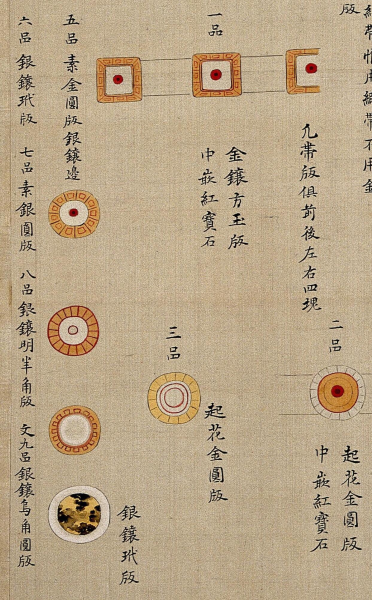 不用金
版
凡帶版俱前後左右四塊
二品
起花金圓版
中嵌紅寶石
一品
金鑲方玉版
中嵌紅寶石
三品
起花金圓版
銀鑲玳版
五品 素金圓版銀鑲邊
六品 銀鑲玳版
七品素銀圓版
八品銀鑲明羊角版
文九品銀鑲烏角圓版